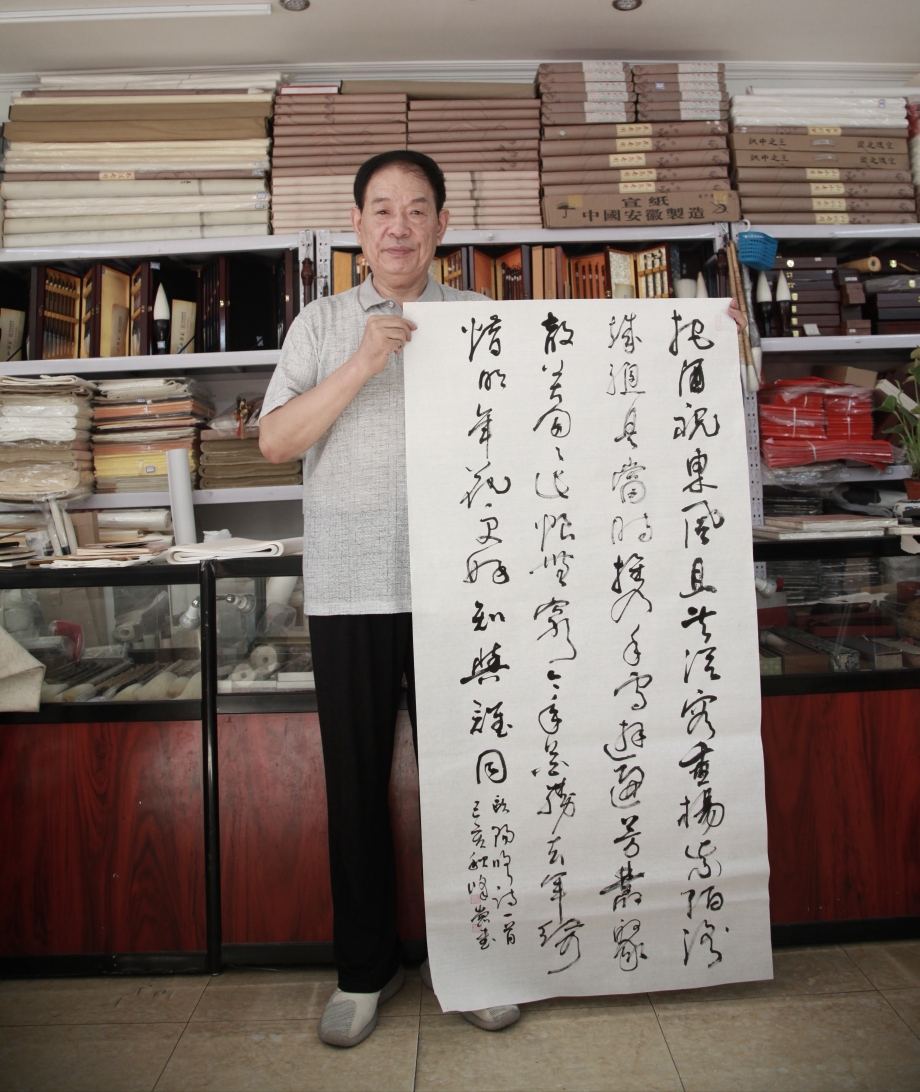 宣紙
中國安徽製造
紙中之王
把酒祝東風且共從容垂楊紫陌洛
城總是當時携手處遊遍芳叢聚
散苦匆〻此恨無窮今年花勝去年紅可
惜明年花更好知與誰同
歐陽修詩一首
己亥秋峰